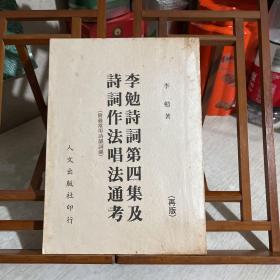 李勉著
李勉詩詞第四集及
詩詞作法唱法通考
(附最實用詩韻詞韻)
(再版)
人文出版社印行